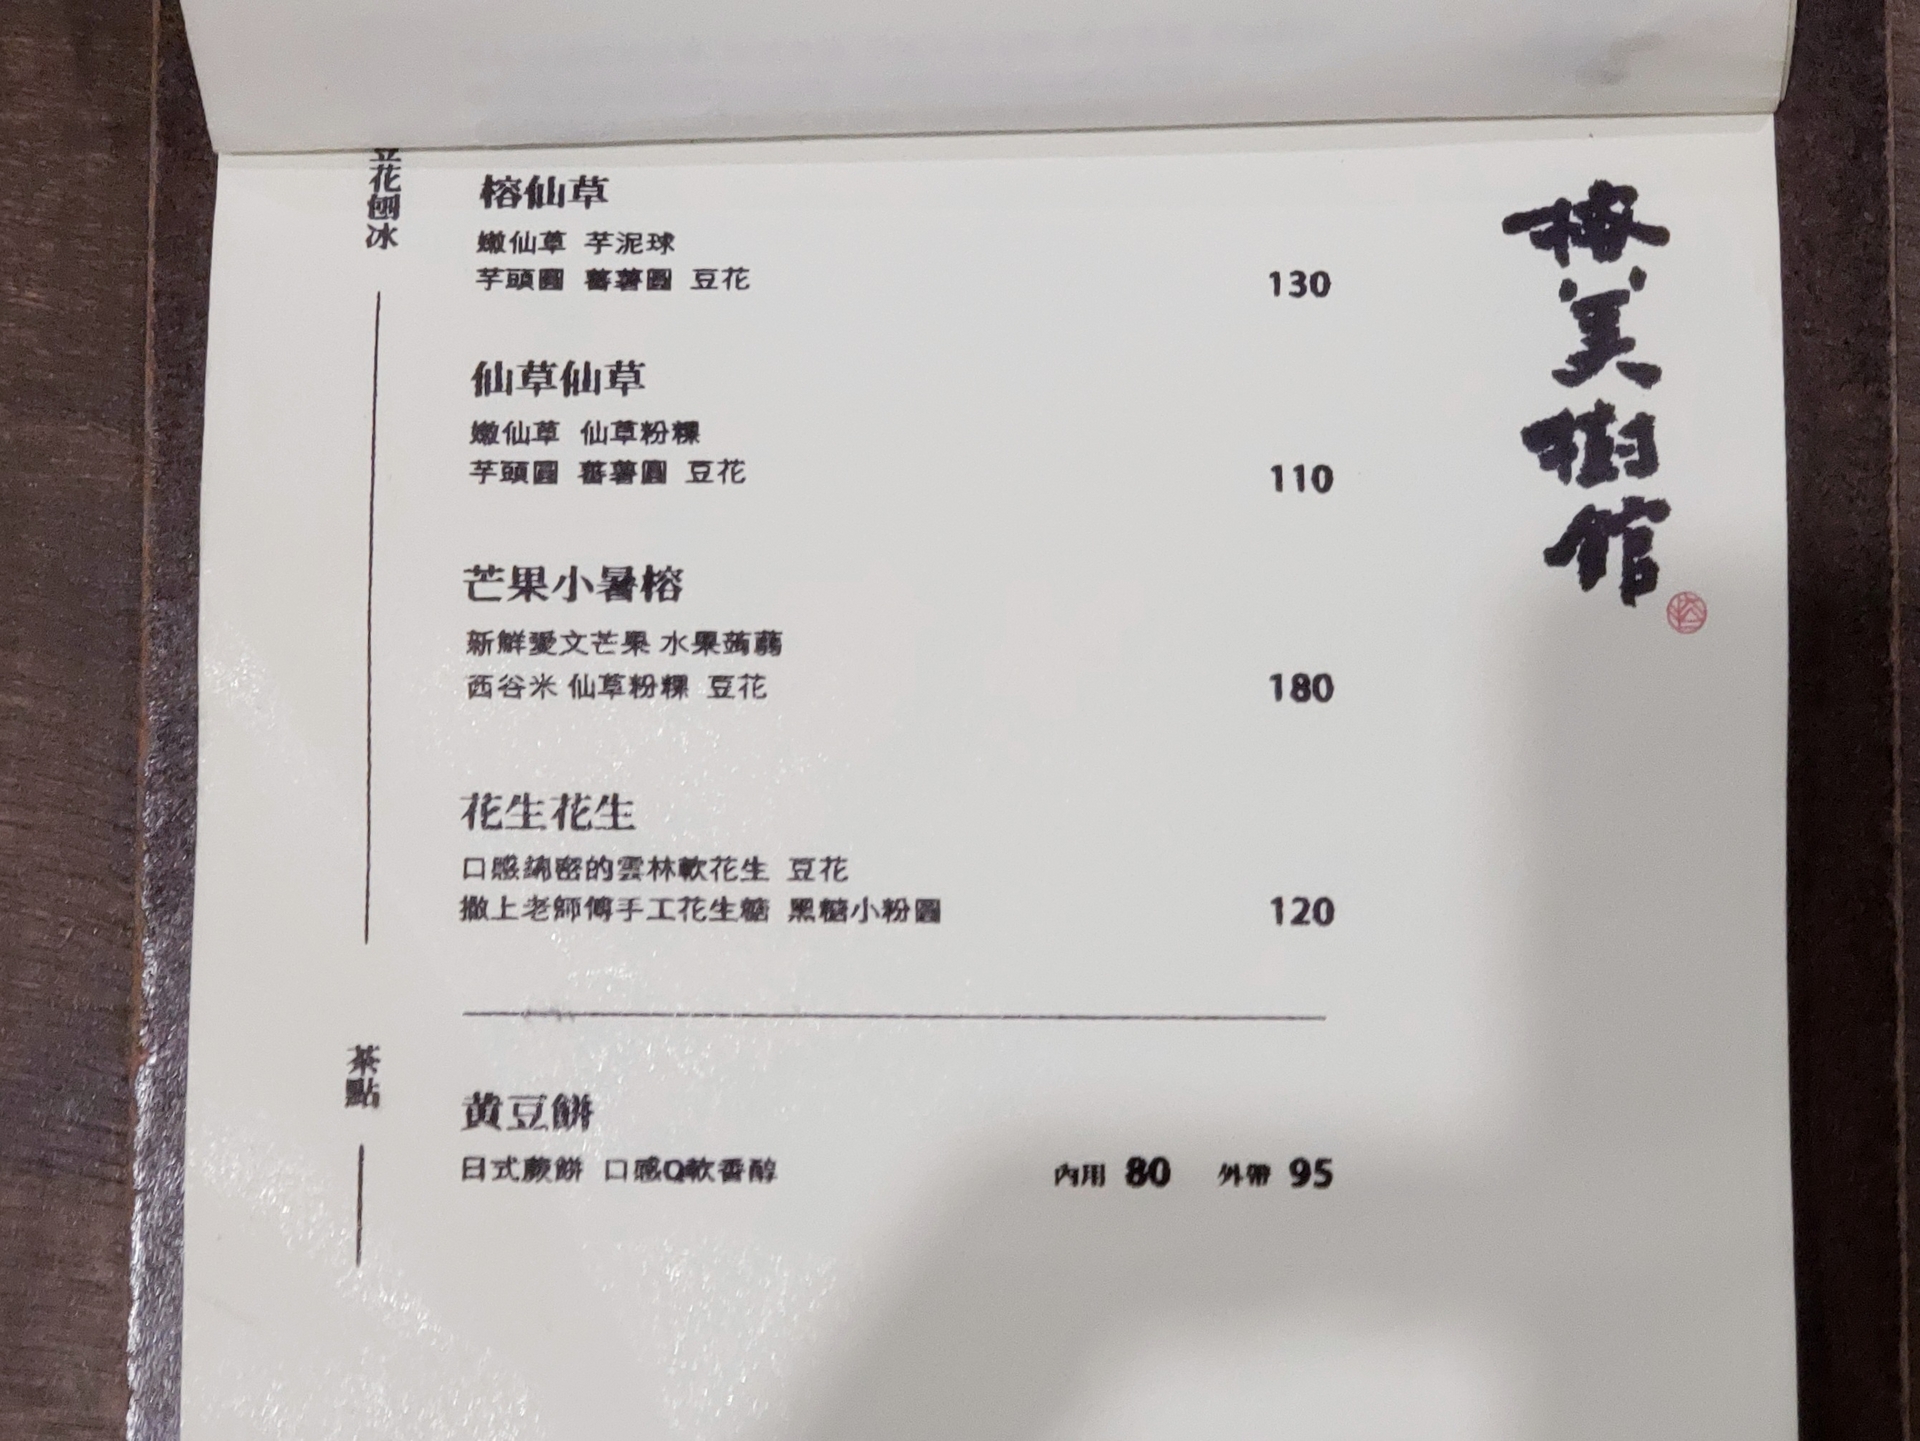 榕美樹館
豆花刨冰
榕仙草
嫩仙草 芋泥球
芋頭圓 蕃薯圓 豆花 130
仙草仙草
嫩仙草 仙草粉粿
芋頭圓 蕃薯圓 豆花 110
芒果小暑榕
新鮮愛文芒果 水果蒟蒻
西谷米 仙草粉粿 豆花 180
花生花生
口感綿密的雲林軟花生 豆花
撒上老師傅手工花生糖 黑糖小粉圓 120
茶點
黄豆餅
日式蕨餅 口感Q軟香醇 內用 80 外帶 95